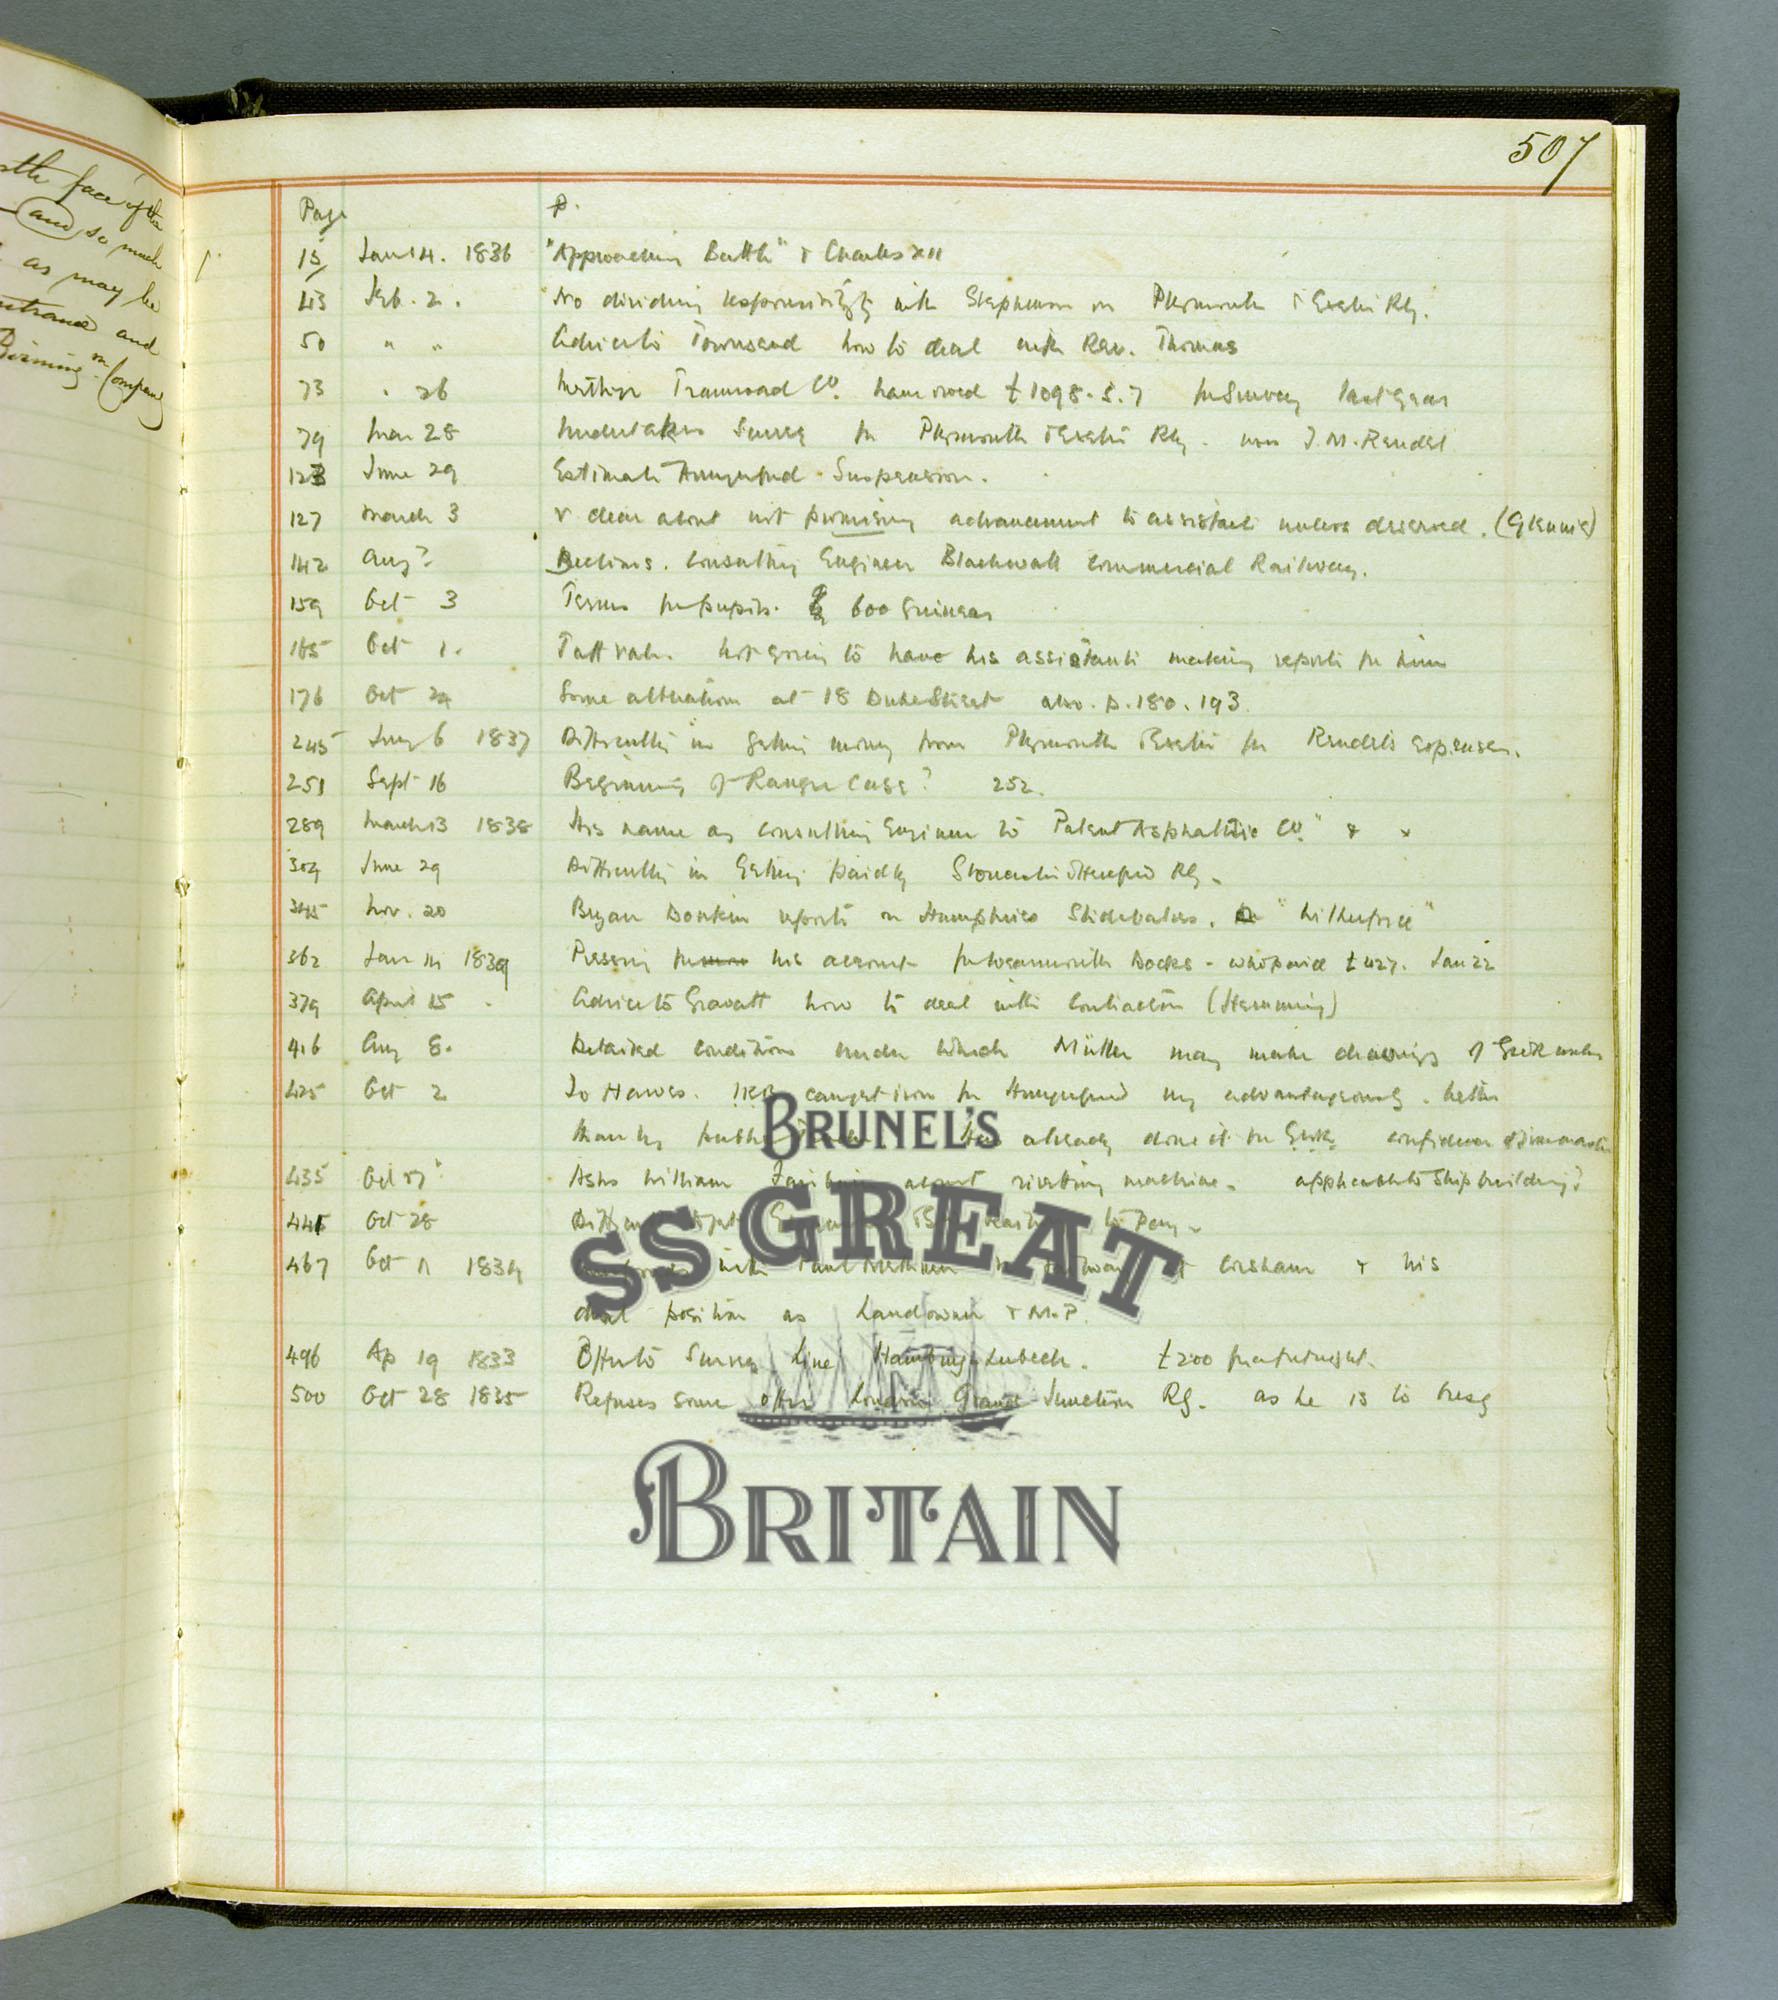 507
Page
15 Jan 14. 1836 "Approaching Battle" & Charles XII
43 Feb. 2. No dividing responsibility with Stephenson on Plymouth & Exeter Rly.
50 " " Advice to Townsend how to deal with Rev. Thomas
73 " 26 Merthyr Tramroad Co. have owed £1098.5.7 for Survey last year
79 Mar 28 Undertakes Survey for Plymouth & Exeter Rly. J.M. Rendel
123 June 29 Estimate Hungerford Suspension.
127 March 3 v clear about not promising advancement to assistants unless deserved. (Glennie)
142 Aug? Declines. Consulting Engineer Blackwall Commercial Railway.
159 Oct 3 Terms for pupils. 600 Guineas
165 Oct 1. Taff Vale. Not going to have his assistants making reports for him
176 Oct 24 Some alterations at 18 Duke Street also. p. 180. 193.
245 1837 Difficulty in getting money from Plymouth & Exeter for Rendel's expenses.
251 Sept 16 Beginning of Ranger Case? 252.
289 March 13 1838 His name as consulting Engineer to "Patent Asphaltic Co."
309 June 29 Difficulty in getting paid by Gloucester & Hereford Rly.
345 Nov. 20 Bryan Donkin reports on Humphries Slide valves. "Wilberforce"
362 Jan 14 1839 Pressing his account for Docks - who paid £427. Jan 22
379 April 15 Advice to Gravatt how to deal with Contractor (Hemming)
416 Aug 8. Detailed conditions under which Müller may make drawings of GWR works
425 Oct 2 To Hawes. can get iron for Hungerford v advantageously. better
than by already done it for
435 Oct Asks William Fairbairn about riveting machine. applicable to Ship building?
445 Oct 28 to Pay.
467 Oct 11 1834 with Paul Methuen Corsham & his
dual position as Landowner & M.P.
496 Ap 19 1833 Offer to Survey Line Hamburg Lubeck. £200 for fortnight.
500 Oct 28 1835 Refuses some offer London Grand Junction Rly. as he is so busy
sth face of the
and so much
as may be
entrance and
Company
BRUNEL'S
SS GREAT
BRITAIN